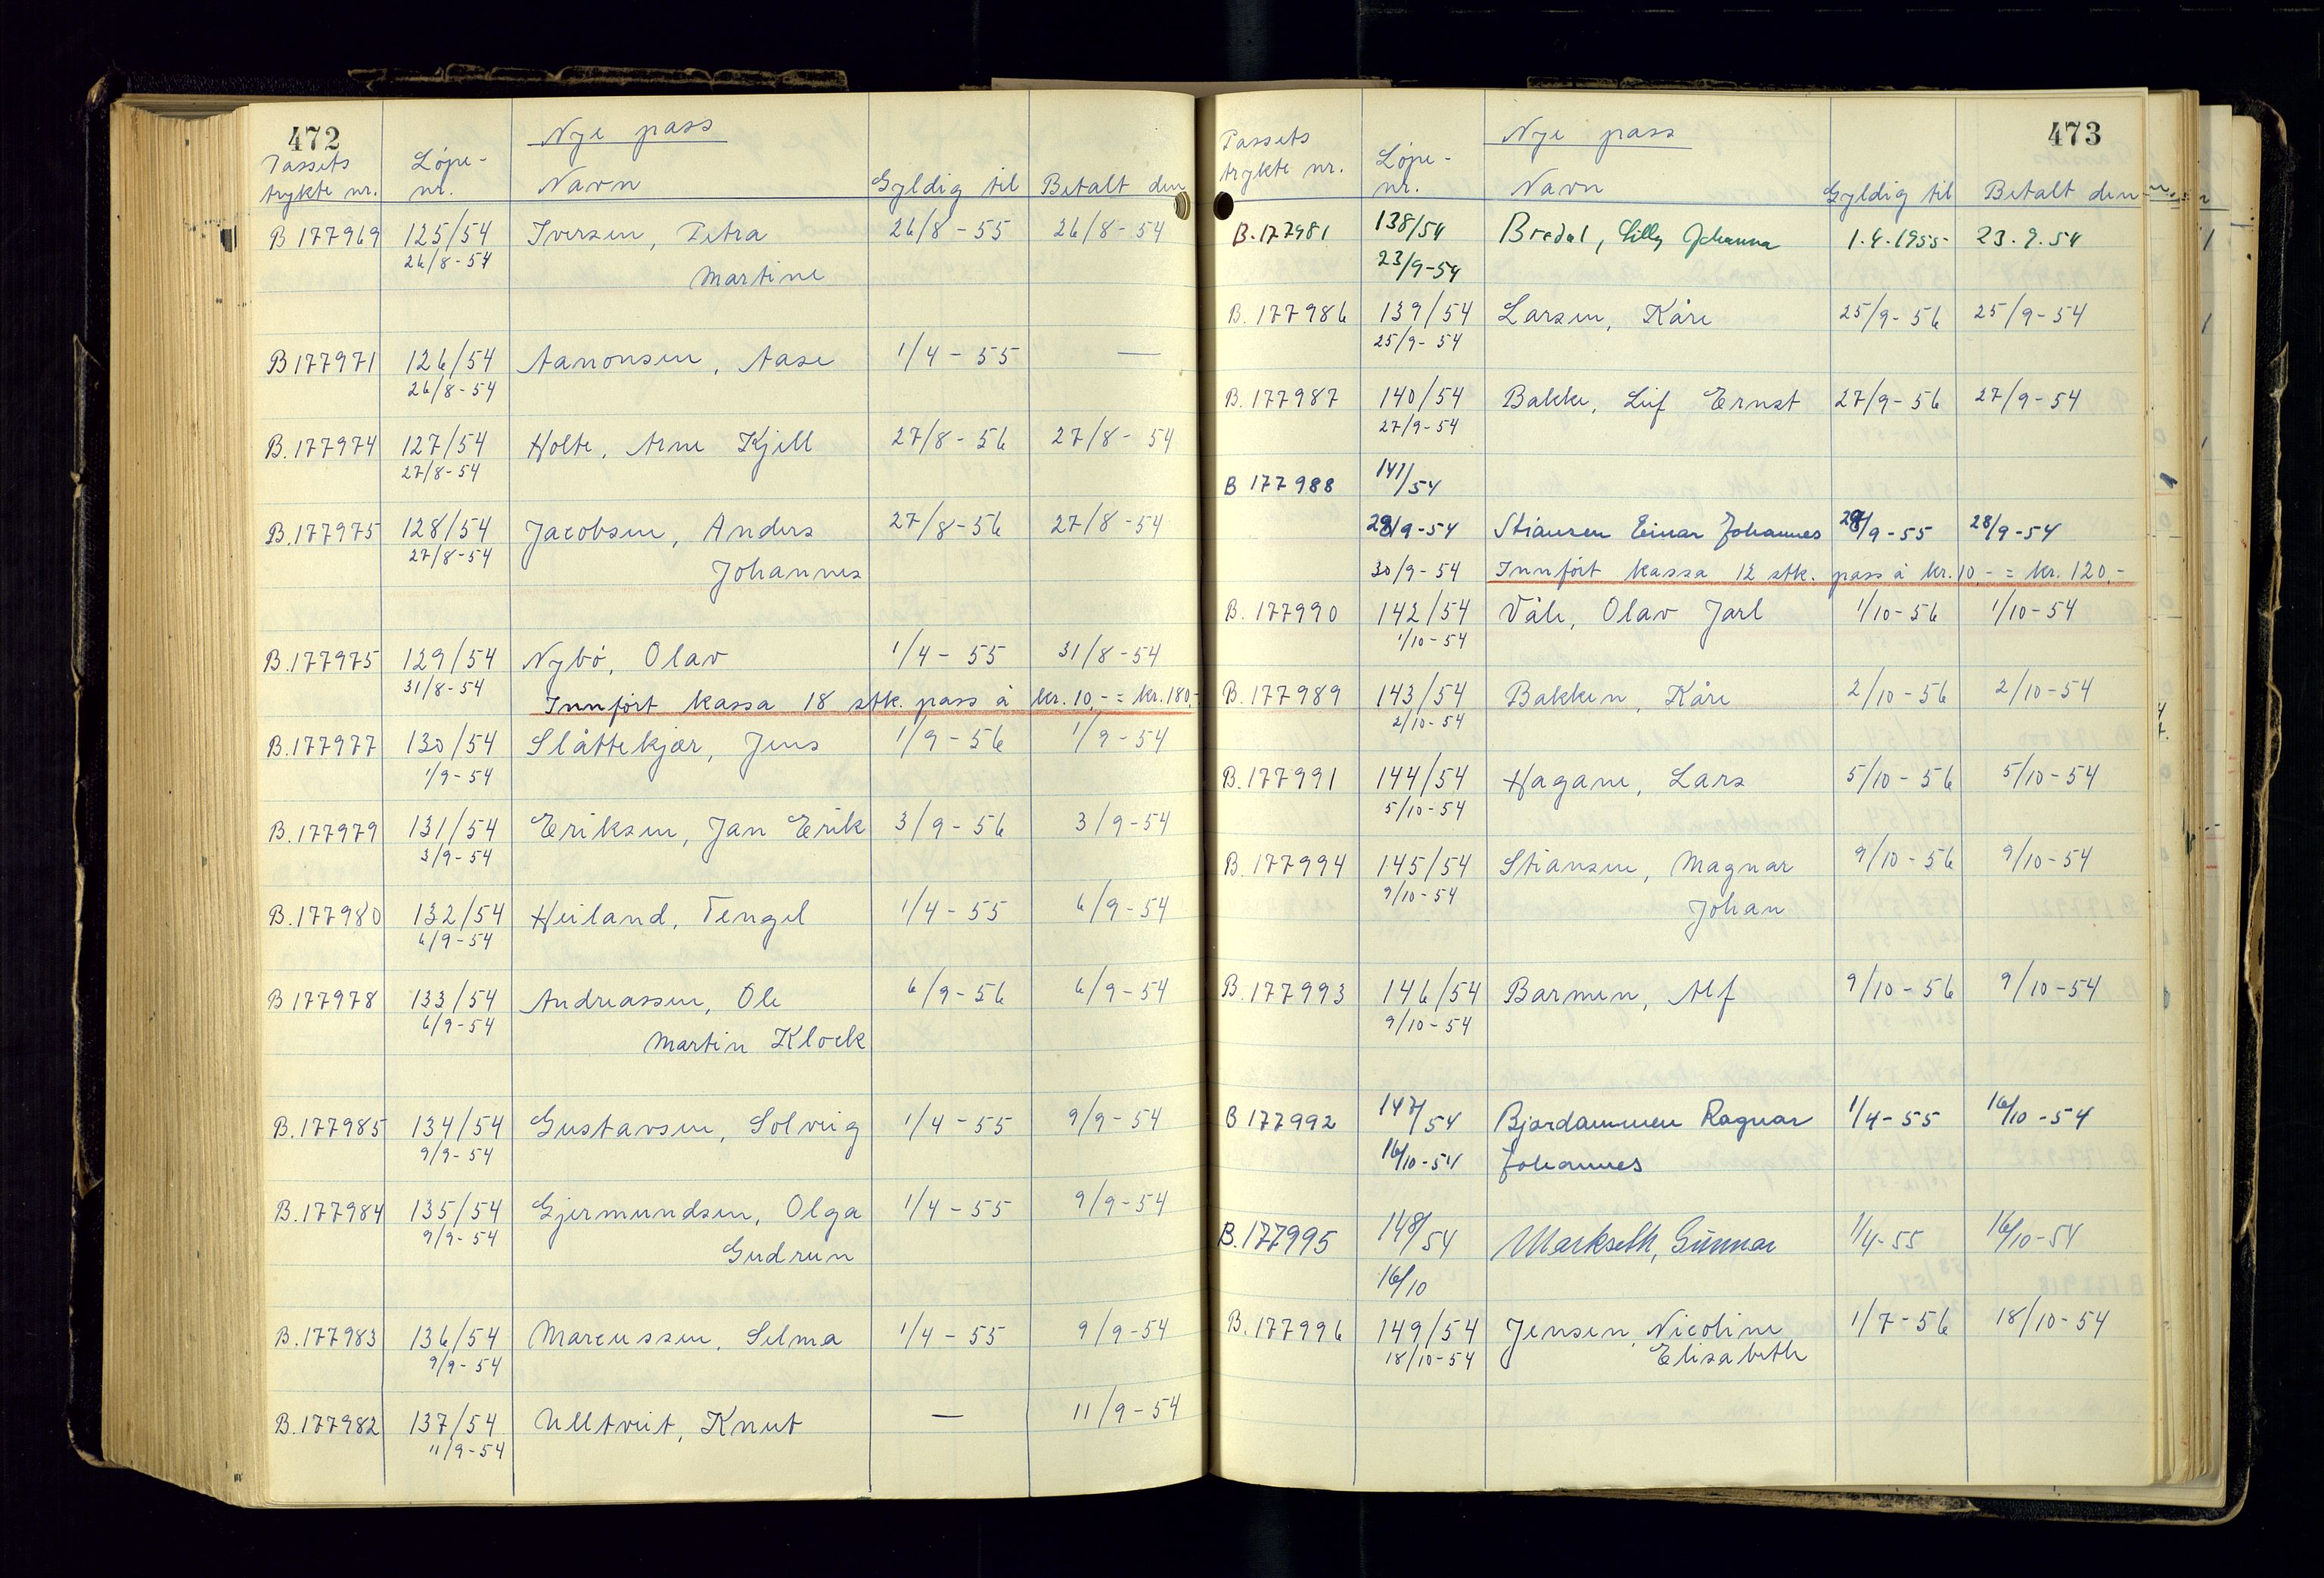 472
Nye pass
Passets Løpe-
trykte nr. nr. Navn Gyldig til Betalt den
B 177969 125/54 Iversen, Petra 26/8-55 26/8-54
26/8-54 Martine
B 177971 126/54 Aanonsen, Aase 1/4-55 —
26/8-54
B. 177974 127/54 Holte, Arne Kjell 27/8-56 27/8-54
27/8-54
B. 177975 128/54 Jacobsen, Anders 27/8-56 27/8-54
27/8-54 Johannes
B. 177975 129/54 Nybø, Olav 1/4-55 31/8-54
31/8-54 Innført kassa 18 stk. pass à kr. 10,- = kr. 180,-
B. 177977 130/54 Slåttekjær, Jens 1/9-56 1/9-54
1/9-54
B. 177979 131/54 Eriksen, Jan Erik 3/9-56 3/9-54
3/9-54
B. 177980 132/54 Heiland, Tengel 1/4-55 6/9-54
6/9-54
B 177978 133/54 Andreassen, Ole 6/9-56 6/9-54
6/9-54 Martin Klock
B. 177985 134/54 Gustavsen, Solveig 1/4-55 9/9-54
9/9-54
B. 177984 135/54 Gjermundsen, Olga 1/4-55 9/9-54
9/9-54 Gudrun
B. 177983 136/54 Marcussen, Selma 1/4-55 9/9-54
9/9-54
B. 177982 137/54 Ulltveit, Knut — 11/9-54
11/9-54
473
Nye pass
Passets Løpe-
trykte nr. nr. Navn Gyldig til Betalt den
B. 177981 138/54 Bredal, Lilly Johanna 1.4.1955 23.9.54
23/9-54
B. 177986 139/54 Larsen, Kåre 25/9-56 25/9-54
25/9-54
B. 177987 140/54 Bakke, Leif Ernst 27/9-56 27/9-54
27/9-54
B 177988 141/54
28/9-54 Stiansen Einar Johannes 28/9-55 28/9-54
30/9-54 Innført kassa 12 stk. pass à kr. 10,- = kr. 120,-
B. 177990 142/54 Våle, Olav Jarl 1/10-56 1/10-54
1/10-54
B. 177989 143/54 Bakken, Kåre 2/10-56 2/10-54
2/10-54
B. 177991 144/54 Hagane, Lars 5/10-56 5/10-54
5/10-54
B. 177994 145/54 Stiansen, Magnar 9/10-56 9/10-54
9/10-54 Johan
B. 177993 146/54 Barmen, Alf 9/10-56 9/10-54
9/10-54
B 177992 147/54 Bjordammen Ragnar 1/4-55 16/10-54
16/10-54 Johannes
B. 177995 148/54 Markseth, Gunnar 1/4-55 16/10-54
16/10
B. 177996 149/54 Jensen, Nicoline 1/7-56 18/10-54
18/10-54 Elisabeth